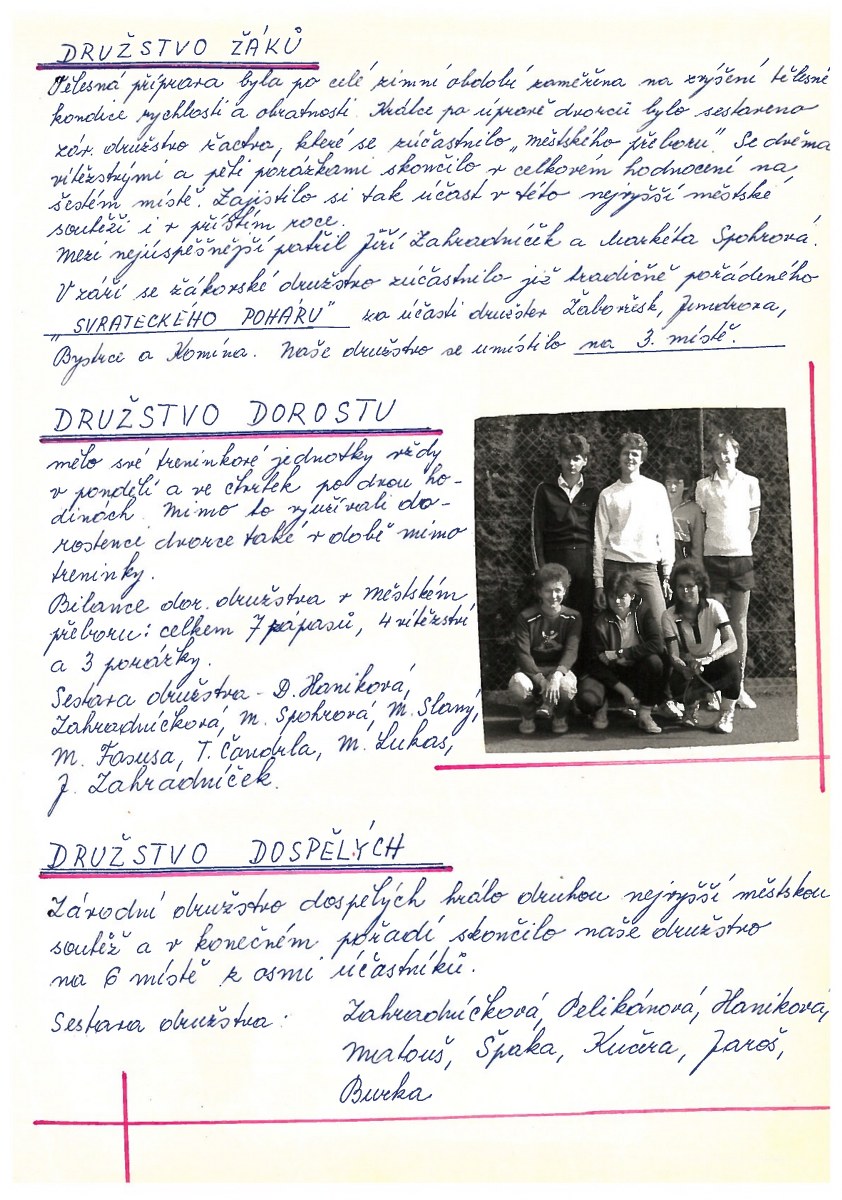 DRUŽSTVO ŽÁKŮ
Tělesná příprava byla po celé zimní období zaměřena na zvýšení tělesné
kondice rychlosti a obratnosti. Krátce po úpravě dvorců bylo sestaveno
záv. družstvo žactva, které se zúčastnilo „Městského přeboru". Se dvěma
vítězstvými a pěti porážkami skončilo v celkovém hodnocení na
šestém místě. Zajistilo si tak účast v této nejvyšší městské
soutěži i v příštím roce.
Mezi nejúspěšnější patřil Jiří Zahradníček a Markéta Spohrová.
V září se žákovské družstvo zúčastnilo již tradičně pořádeného
„SVRATECKÉHO POHÁRU" za účasti družstev Žabovřesk, Jundrova,
Bystrce a Komína. Naše družstvo se umístilo na 3. místě.
DRUŽSTVO DOROSTU
mělo své treninkové jednotky vždy
v pondělí a ve čtvrtek po dvou ho-
dinách. Mimo to využívali do-
rostenci dvorce také v době mimo
treninky.
Bilance dor. družstva v Městském
přeboru: celkem 7 zápasů, 4 vítězství
a 3 porážky.
Sestava družstva - D. Haniková,
Zahradníčková, M. Spohrová, M. Slaný,
M. Fasusa, T. Čandrla, M. Lukas,
J. Zahradníček.
DRUŽSTVO DOSPĚLÝCH
Závodní družstvo dospělých hrálo druhou nejvyšší městskou
soutěž a v konečném pořadí skončilo naše družstvo
na 6 místě z osmi účastníků.
Sestava družstva: Zahradníčková, Pelikánová, Haniková,
Matouš, Špaka, Kučera, Jaroš,
Burka